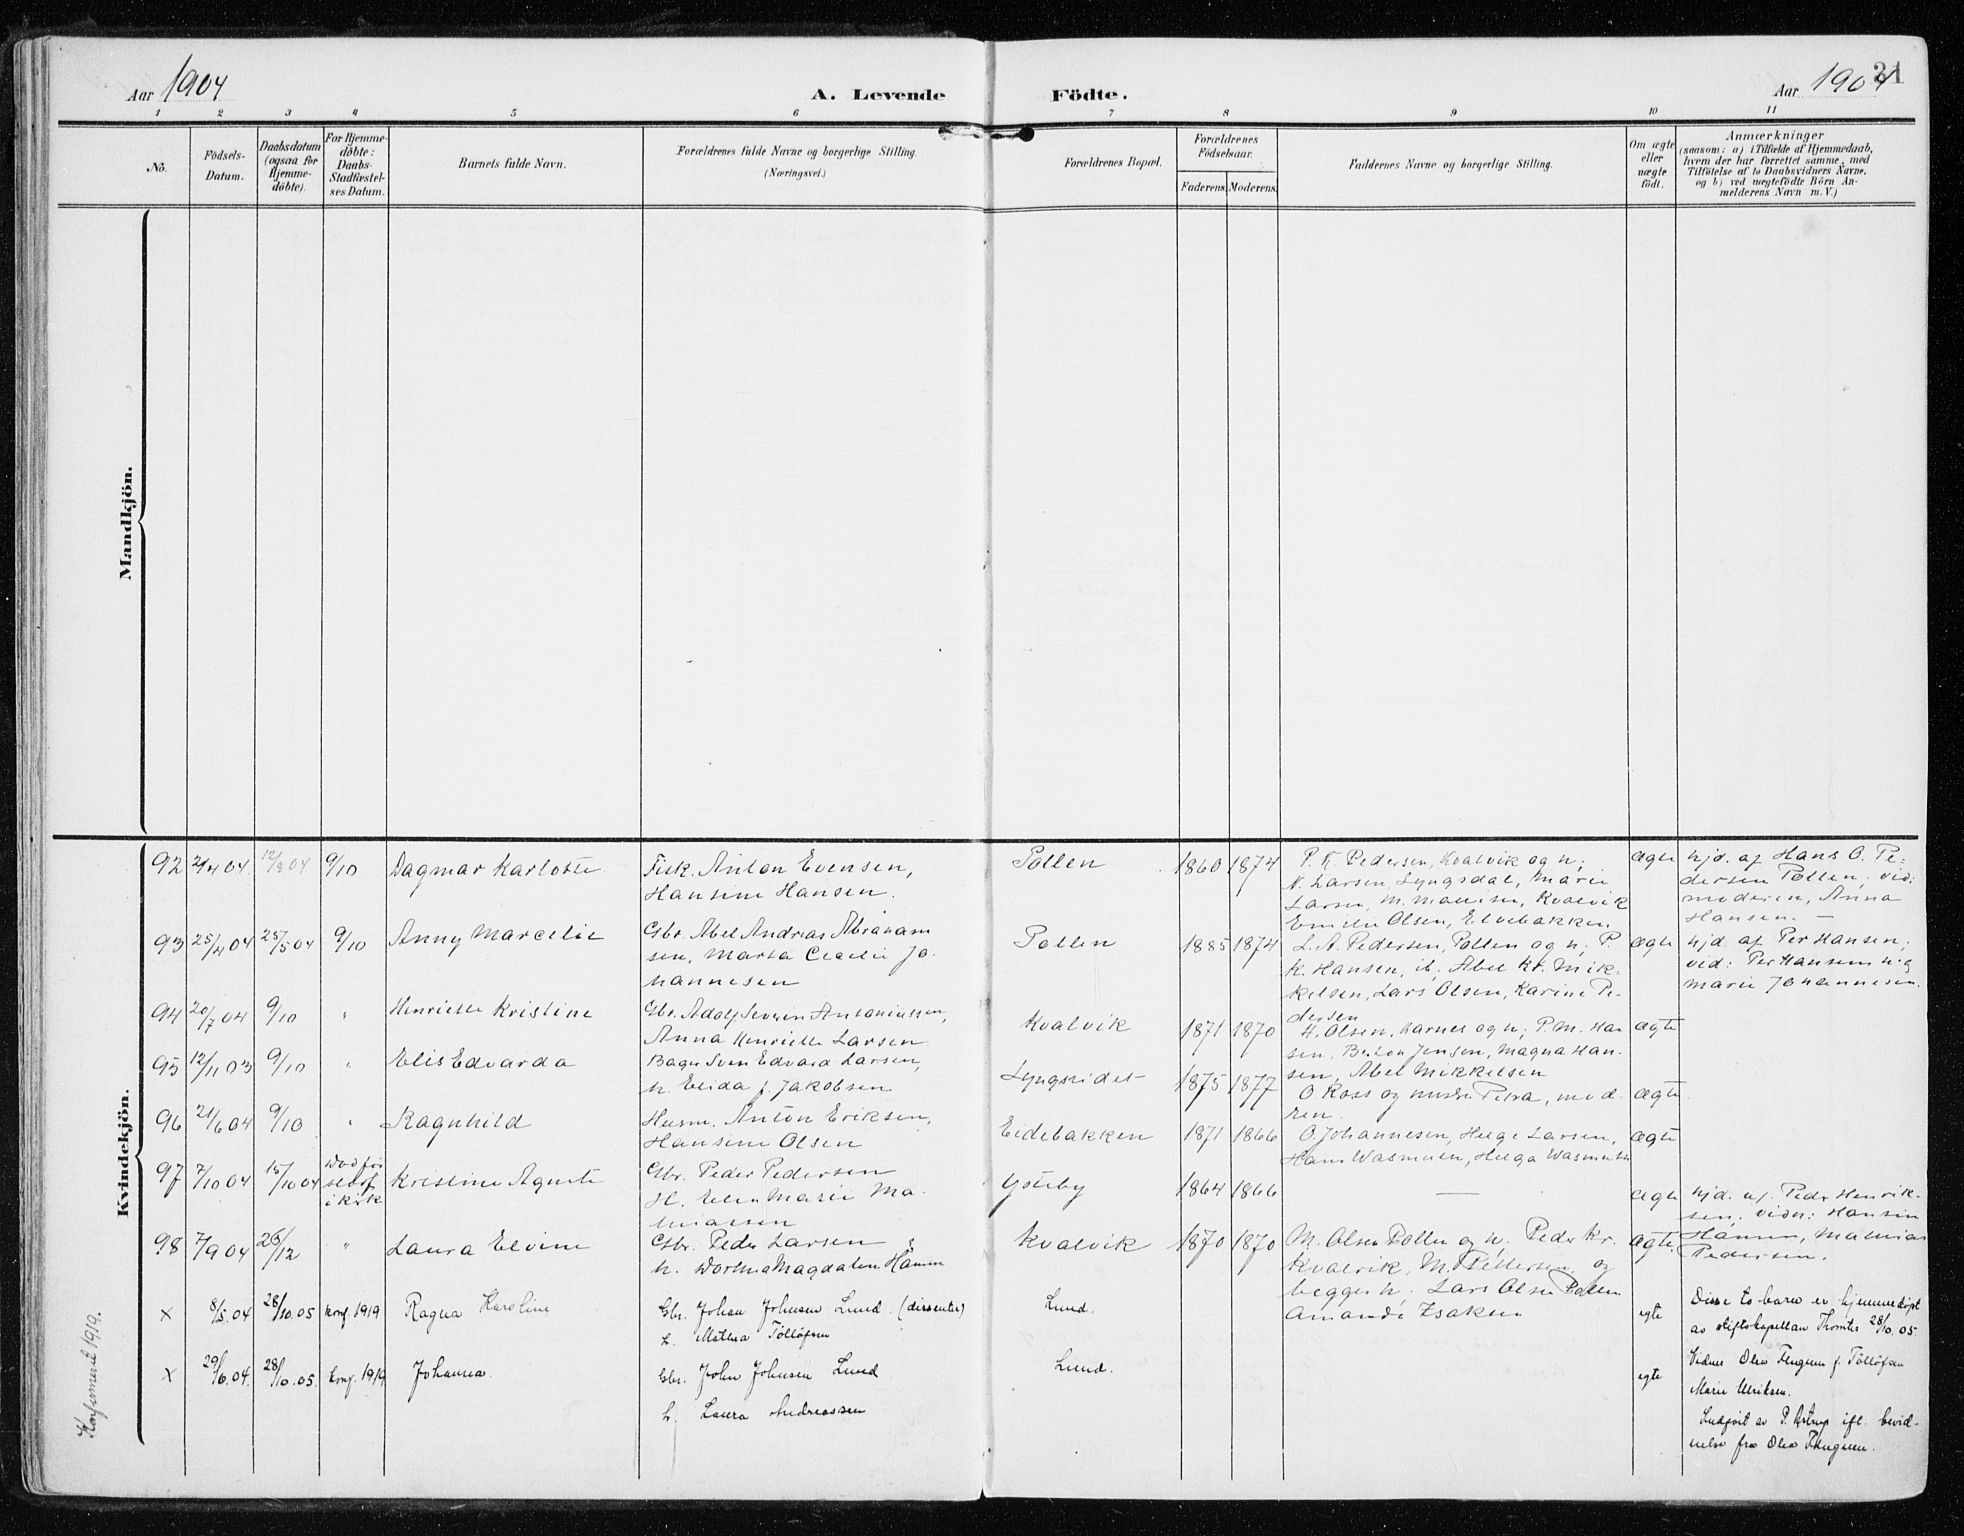 Aar 1904
A. Levende
Födte.
Aar 1904
31
1 2 3 4 5 6 7 8 9 10 11
No.
Födsels-
Datum.
Daabsdatum
(ogsaa for
Hjemme-
döbte).
For Hjemme-
döbte:
Daabs-
Stadfæstel-
ses Datum.
Barnets fulde Navn.
Forældrenes fulde Navne og borgerlige Stilling.
(Næringsvei.)
Forældrenes Bopæl.
Forældrenes
Födselsaar.
Faderens. Moderens.
Faddernes Navne og borgerlige Stilling.
Om ægte
eller
uægte
födt.
Anmærkninger
(saasom: a) i Tilfælde af Hjemmedaab,
hvem der har forrettet samme, med
Tilföielse af to Daabsvidners Navne,
og b) ved uægtefödte Börn An-
melderens Navn m. V.)
Mandkjön.
Kvindekjön.
Konfirmeret 1919.
92 2/4 04 12/8 04 9/10 Dagmar Karlotte
Fisk. Anton Evensen,
Hansine Hansen.
Pollen 1860 1874
P. K. Pedersen, Kvalvik og h;
N. Larsen, Lyngsdal, Marie
Larsen, M. Kvalvik
Emilie Olsen, Elvebakken
ægte
hjd. af Hans O. Pe-
dersen Pollen; vid:
moderen, Anna
Hansen. —
93 25/4 04 25/5 04 9/10 Anny Marcelie
Gbr. Abel Andreas Abraham
sen, Marta Cecilie Jo
hannesen
Pollen 1885 1874
L. A. Pedersen, Pollen og h; P.
K. Hansen, Abel Kr. Mik-
kelsen, Lars Olsen, Karine Pe-
dersen
ægte
hjd. af Per Hansen;
vid: Per Hansen
Marie Johannesen.
94 20/7 04 9/10 " Henriette Kristine
Gbr. Adolf Severin Antoniussen,
Anna Henriette Larsen
Kvalvik 1871 1870
H. Olsen, Karnes og h; P. M. Han
sen, Jensen, Magna Han-
sen, Abel Mikkelsen
ægte
95 12/11 03 9/10 " Elis Edvarda
Bager Sven Edvard Larsen,
h. Elida f. Jakobsen
Lyngseidet 1875 1877
O. Koss og hustru Petra, mod-
ren.
ægte
96 21/6 04 9/10 " Ragnhild
Husm. Anton Eriksen,
Hansine Olsen
Eidebakken 1871 1866
O. Johannesen, Helge Larsen,
Hans Wasmuth, Helga Wasmuth
ægte
97 7/10 04 15/10 04 Död för
stadf
i kirk
Kristine Agnete
Gbr. Peder Pedersen
H. Elen Marie Ma-
thiassen
Ysteby 1864 1866 — ægte
hjd. af. Peder Henrik-
sen; vidn: Hansin
Hansen, Mathias
Pedersen.
98 7/9 04 26/12 " Laura Elvine
Gbr. Peder Larsen &
h. Dorthea Magdalen Hansen
Kvalvik 1870 1870
M. Olsen Pollen og h. Peder Kr.
Kvalvik, M. Pettersen, og
begges h. Lars Olsen Pollen
Amanda Isaksen
ægte
x 8/5 04 28/10 05 konf 1919 Ragna Karoline
Gbr. Johan Johnsen Lund. (dissenter)
h. Mathea Tollöfsen
Lund.
egte
Disse to barn er hjemmedöpt
av stiftskapellan Thomter 28/10.05.
x 29/6 04. 28/10.05. konf. 1919 Johanna.
Gbr. John Johnsen Lund
h. Laura Andreassen
Lund.
egte
Vidner Olea f. Tollöfsen
Marie Ulriksen.
Indfört av P. Astrup ifl. bevid-
nelse fra Olea